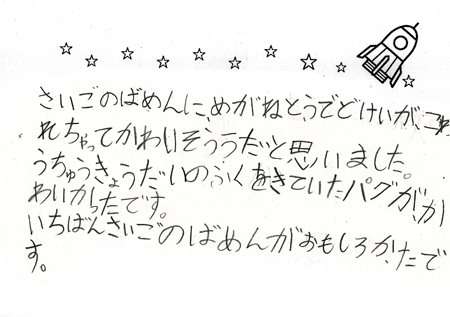 さいごのばめんに、めがねとうでどけいが、こわ
れちゃってかわいそううだと思いました。
うちゅうきょうだいのふくをきていたパグが、か
わいかったです。
いちばんさいごのばめんがおもしろかったで
す。